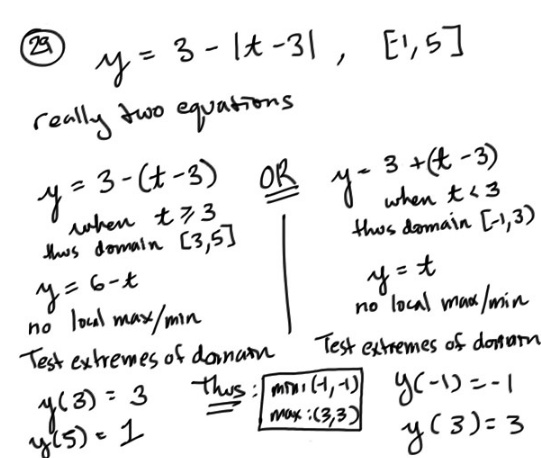 29 y = 3 - |t - 3| , [-1, 5]
really two equations
y = 3 - (t - 3)
when t ⩾ 3
thus domain [3,5]
y = 6 - t
no local max/min
Test extremes of domain
y(3) = 3
y(5) = 1
OR
y = 3 + (t - 3)
when t < 3
thus domain [-1,3)
y = t
no local max/min
Test extremes of domain
y(-1) = -1
y(3) = 3
Thus:
min: (-1, -1)
max: (3,3)